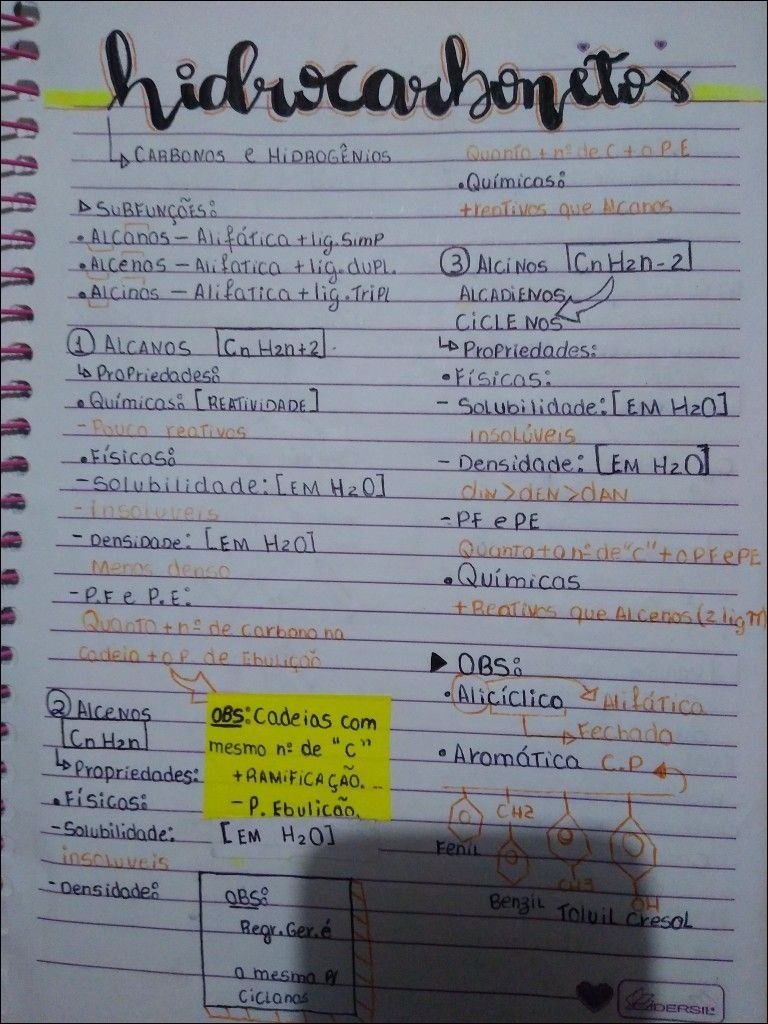 hidrocarbonetos
↳ CARBONOS e HiDROGÊNIOS
▷ SUBFUNÇÕES:
• Alcanos – Alifática + lig. Simp
• Alcenos – Alifatica + lig. dupl.
• Alcinos – Alifatica + lig. Tripl
① ALCANOS CnH2n+2
↳ Propriedades:
• Químicas: [REATIVIDADE]
- Pouco reativos
• Físicas:
- Solubilidade: [EM H2O]
- insoluveis
- Densidade: [EM H2O]
Menos denso
- P.F e P.E:
Quanto + nº de carbono na
cadeia + o P. de Ebulição
OBS: Cadeias com
mesmo nº de "C"
+ RAMIFICAÇÃO...
- P. Ebulicão.
② Alcenos
CnH2n
↳ Propriedades:
• Físicas:
- Solubilidade: [EM H2O]
insoluveis
- Densidade:
OBS:
Regr. Ger. é
a mesma p/
Ciclanos
Quanto + nº de C + o P.E
• Químicas:
+ reativos que Alcanos
③ Alcinos CnH2n-2
ALCADIENOS
CiCLENOS
↳ Propriedades:
• Físicas:
- Solubilidade: [EM H2O]
insolúveis
- Densidade: [EM H2O]
dIN > dEN > dAN
- PF e PE
Quanto + o nº de "C" + o PF e PE
• Químicas
+ Reativos que Alcenos (2 lig π)
▶ OBS:
• Alicíclico → Alifática
↳ Fechada
• Aromática C.P
CH2
Fenil
Benzil
CH3
Toluil
OH
Cresol